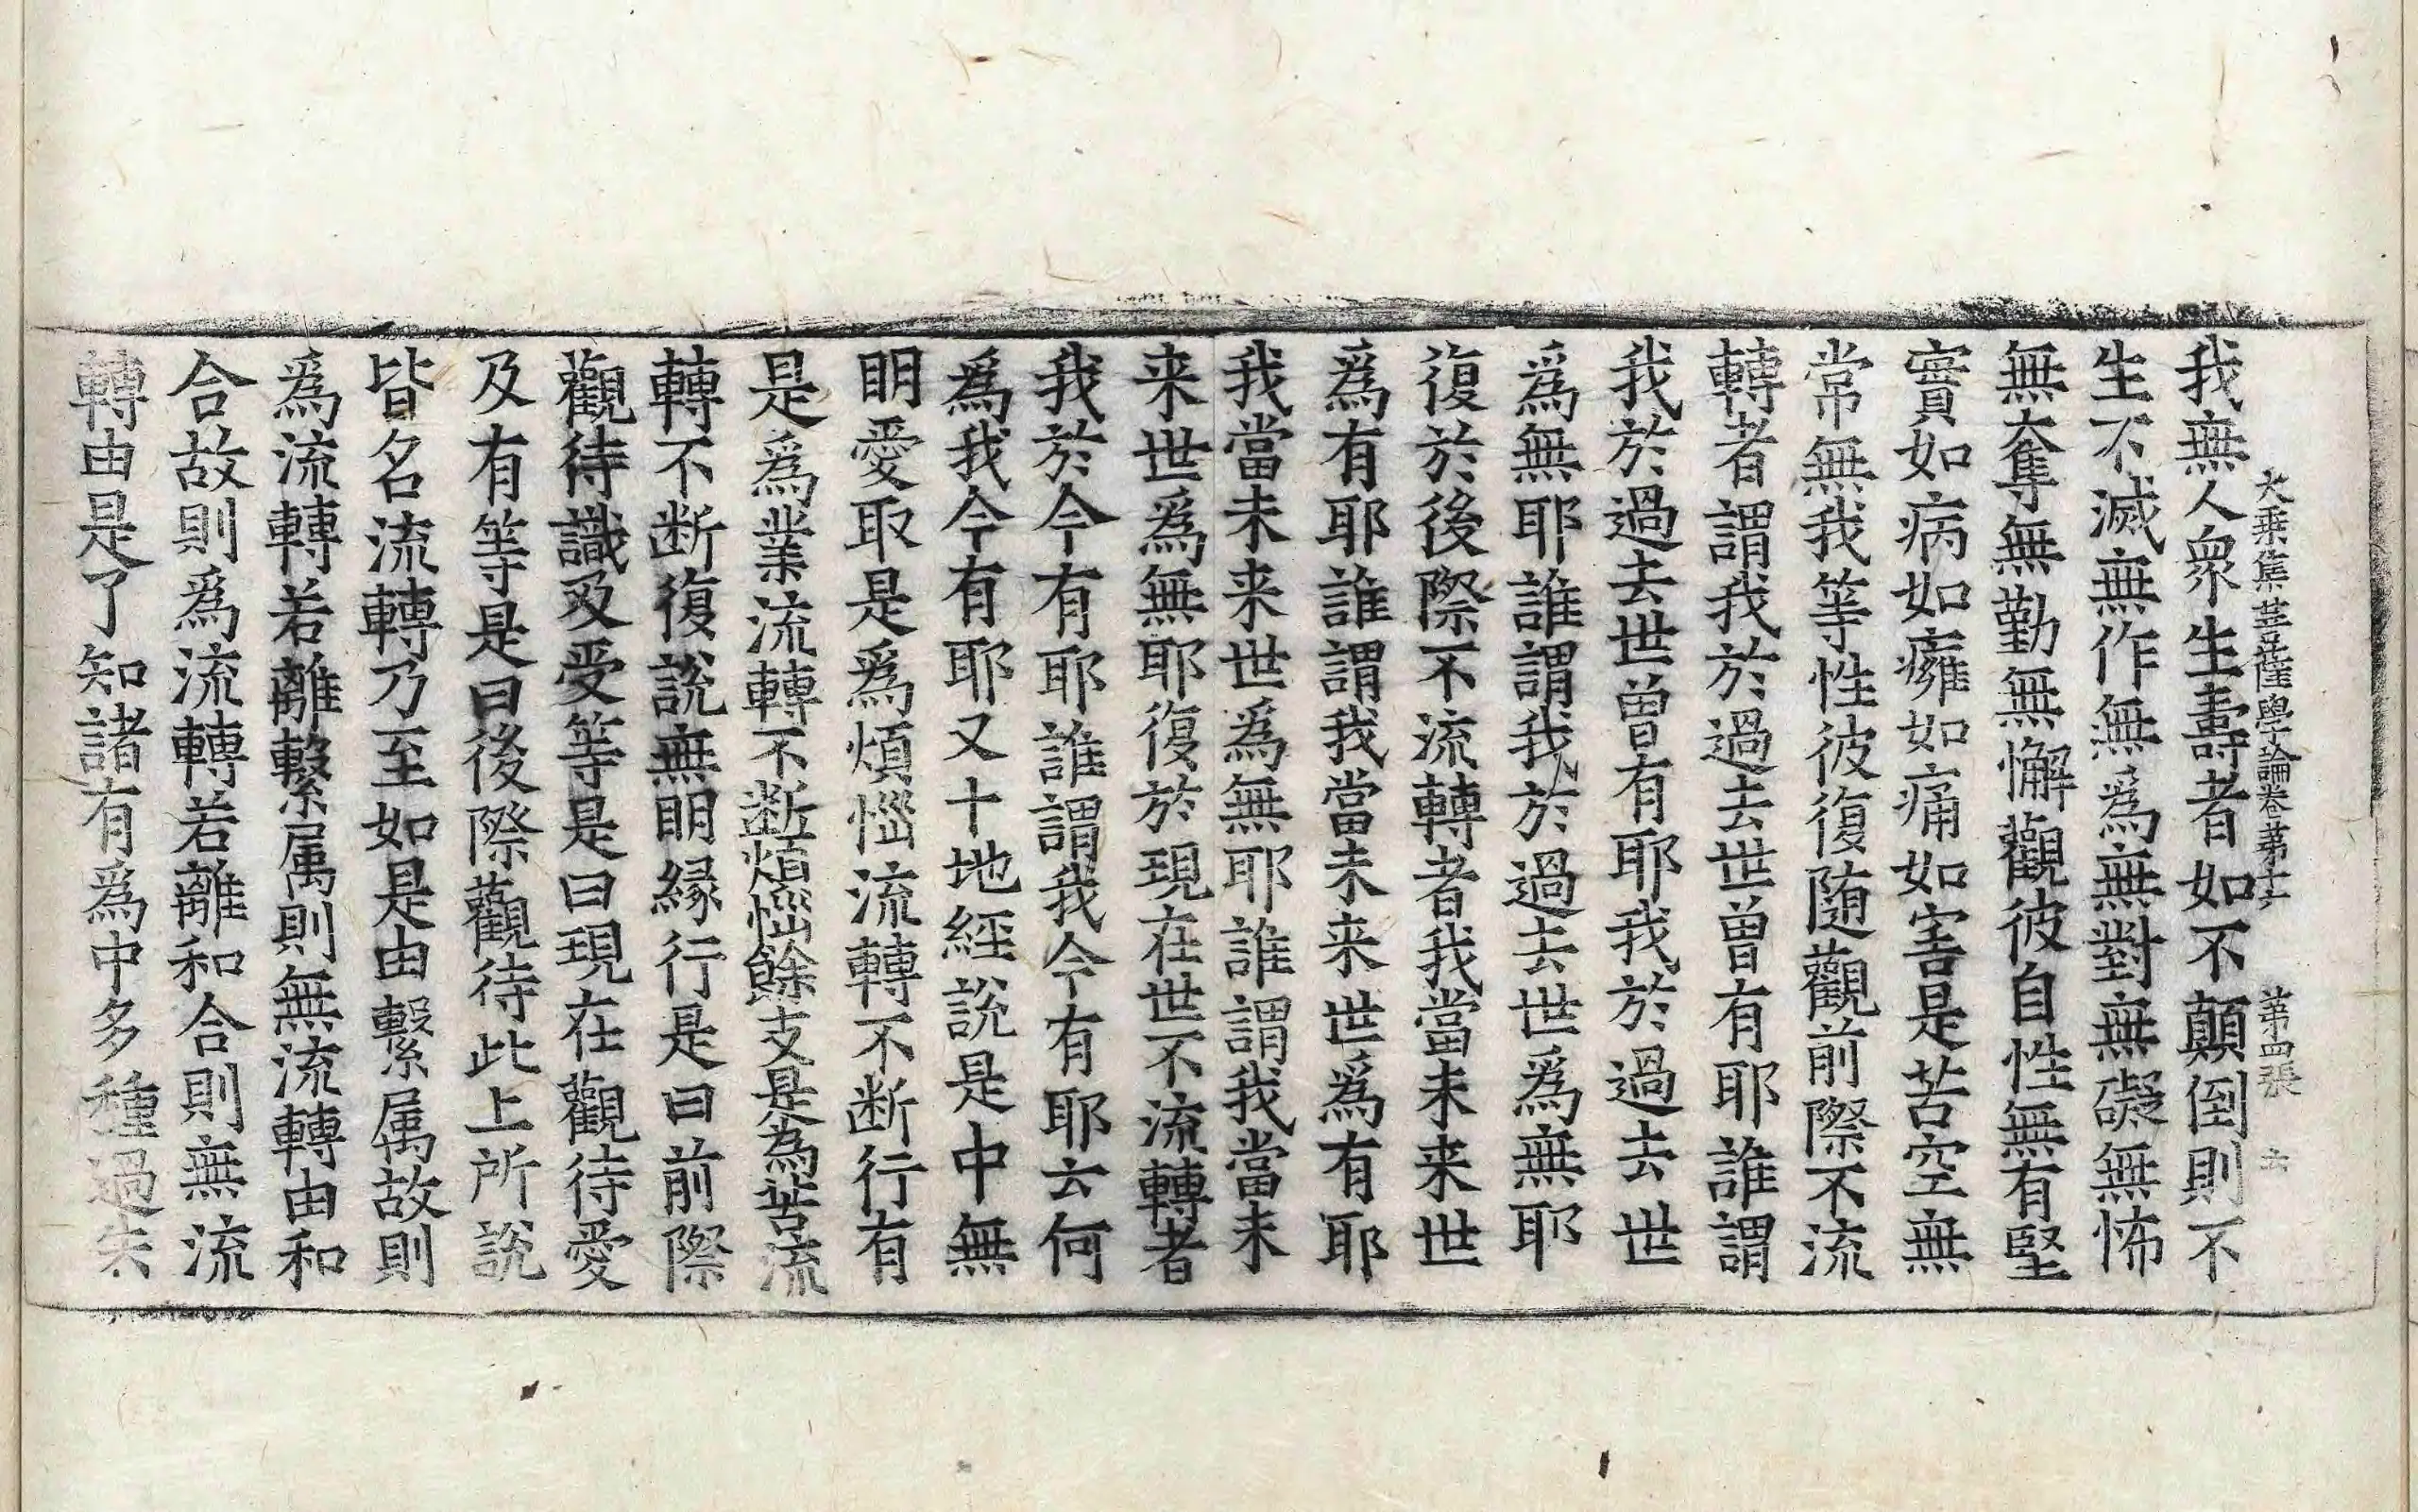 大乗集菩薩學論卷第十六 第四張 去
我無人衆生壽者如不顛倒則不
生不滅無作無爲無對無礙無怖
無奪無勤無懈觀彼自性無有堅
實如病如癰如痛如害是苦空無
常無我等性彼復隨觀前際不流
轉者謂我於過去世曾有耶誰謂
我於過去世曾有耶我於過去世
爲無耶誰謂我於過去世爲無耶
復於後際不流轉者我當未来世
爲有耶誰謂我當未来世爲有耶
我當未来世爲無耶誰謂我當未
来世爲無耶復於現在世不流轉者
我於今有耶誰謂我今有耶云何
爲我今有耶又十地經說是中無
明愛取是爲煩惱流轉不断行有
是爲業流轉不断煩惱餘支是為苦流
轉不断復說無明縁行是曰前際
觀待識及受等是曰現在觀待愛
及有等是曰後際觀待此上所說
皆名流轉乃至如是由繫属故則
爲流轉若離繫属則無流轉由和
合故則爲流轉若離和合則無流
轉由是了知諸有爲中多種過失